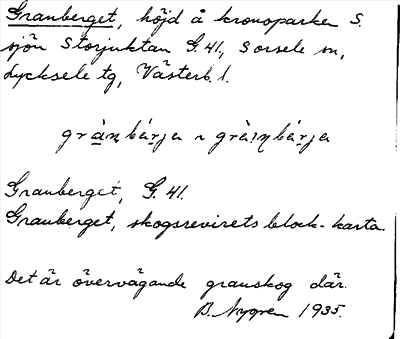 Granberget, höjd å kronoparken S.
sjön Storjuktan G. 41, Sorsele sn,
Lycksele tg, Västerb. l.
grànbárja ~ grànbárja
Granberget, G. 41.
Granberget, skogsrevirets block-karta.
Det är övervägande granskog där.
B. Nygren 1935.